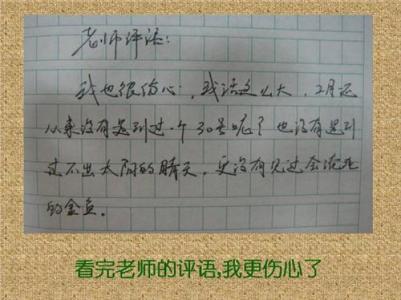 老师评语:
我也很伤心,我活这么大,2月还
从来没有遇到过一个30号呢!也没有遇到
过不出太阳的晴天,更没有见过会淹死
的金鱼。
看完老师的评语,我更伤心了